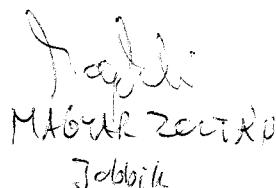 MAGYAR ZOLTÁN
Jobbik